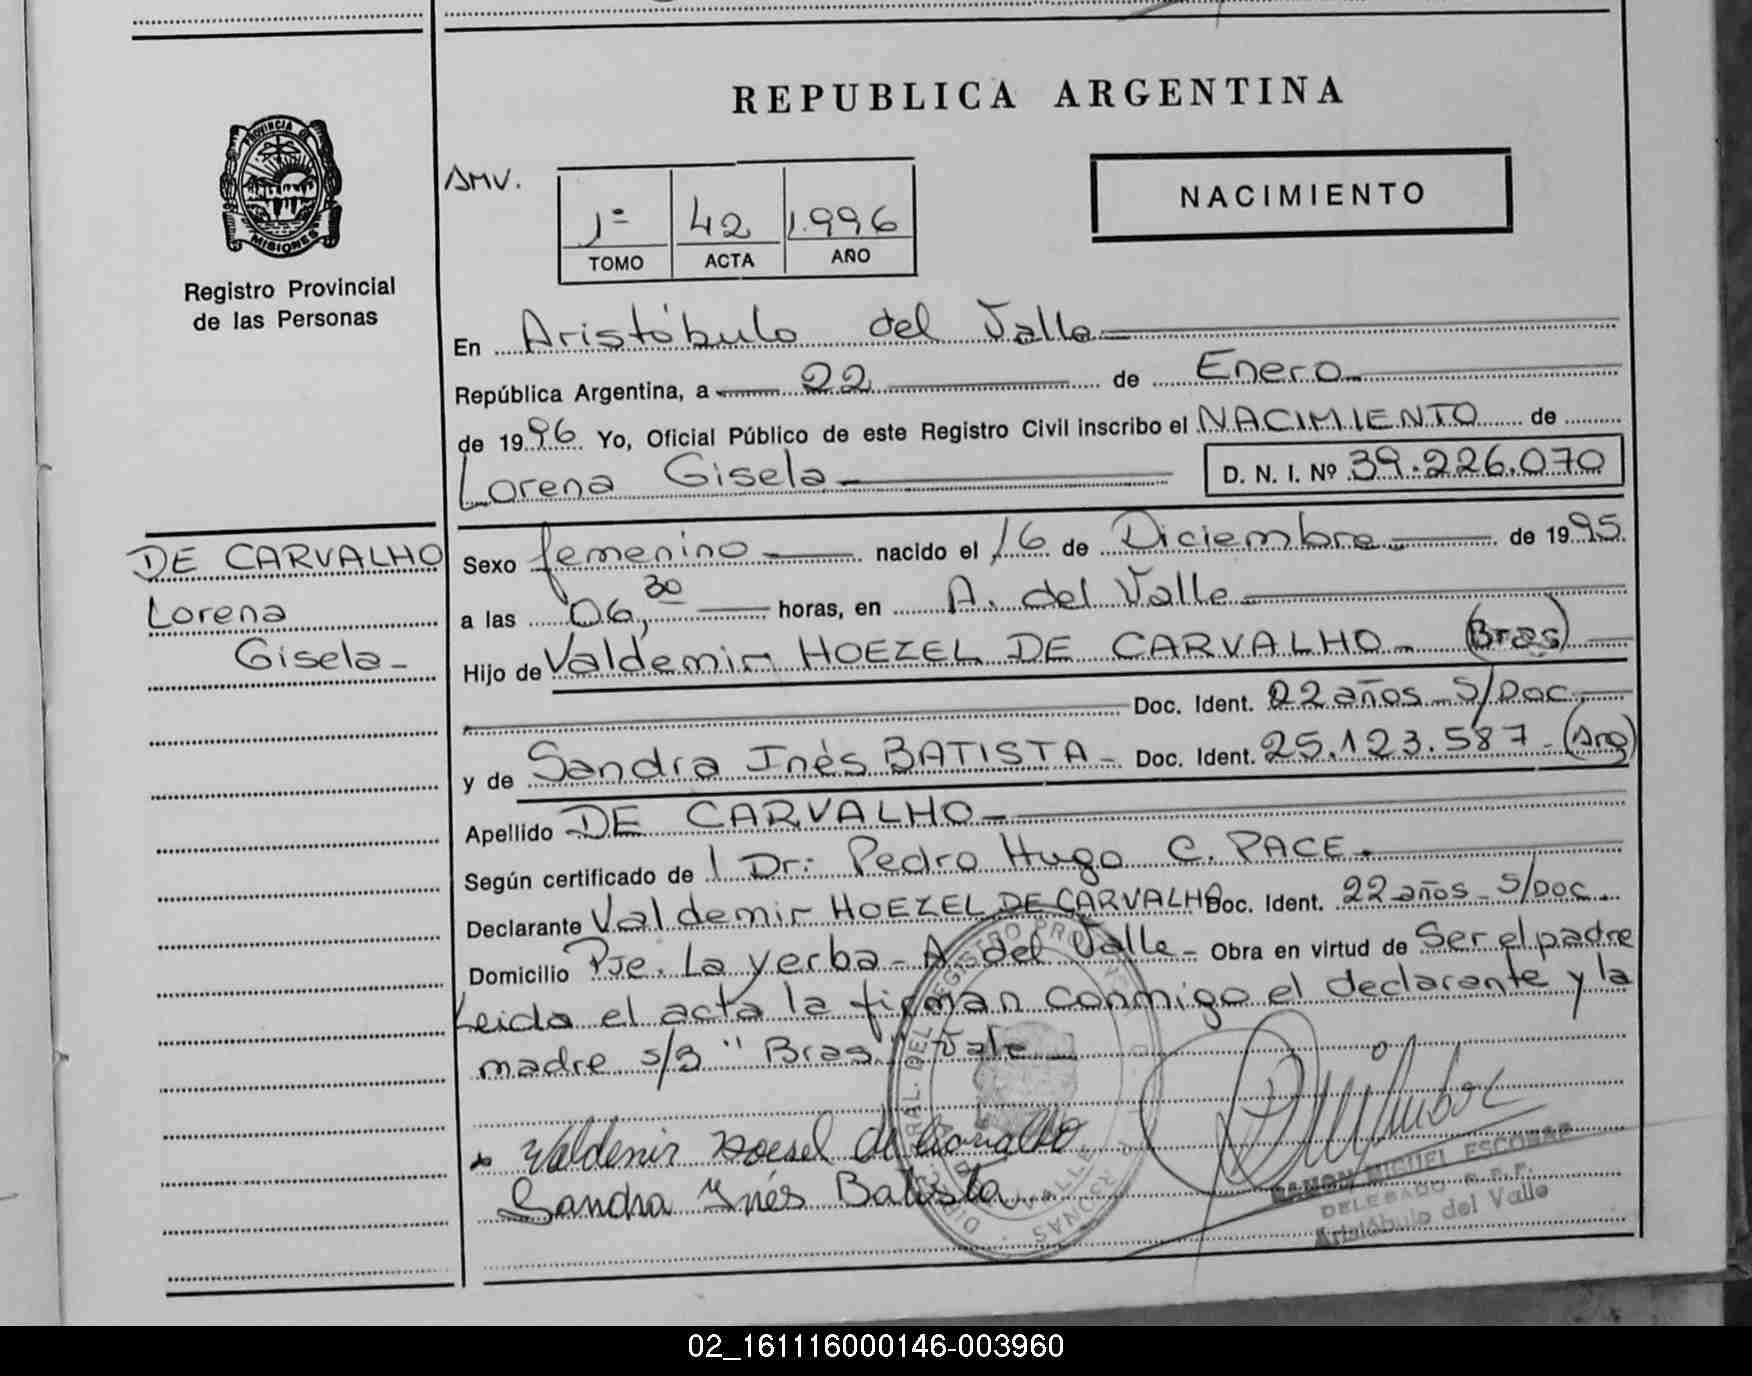 REPUBLICA ARGENTINA
PROVINCIA DE
MISIONES
Registro Provincial
de las Personas
AMV.
1º 42 1.996
TOMO ACTA AÑO
NACIMIENTO
En Aristóbulo del Valle
República Argentina, a 22 de Enero
de 1996 Yo, Oficial Público de este Registro Civil inscribo el NACIMIENTO de
Lorena Gisela D. N. I. Nº 39.226.070
DE CARVALHO
Lorena
Gisela
Sexo femenino nacido el 16 de Diciembre de 1995
a las 06,30 horas, en A. del Valle
Hijo de Valdemir HOEZEL DE CARVALHO (Bras)
Doc. Ident. 22 años S/Doc.
y de Sandra Inés BATISTA Doc. Ident. 25.123.587 (Arg)
Apellido DE CARVALHO
Según certificado de Dr: Pedro Hugo C. PACE.
Declarante Valdemir HOEZEL DE CARVALHO Doc. Ident. 22 años S/Doc.
Domicilio Pje. La yerba - A. del Valle - Obra en virtud de Ser el padre
Leida el acta la firman conmigo el declarante y la
madre s/B "Bras" Vale
Valdemir Hoesel de Carvalho
Sandra Inés Batista
RAMON MIGUEL ESCOBAR
DELEGADO R.P.P.
Aristóbulo del Valle
02_161116000146-003960